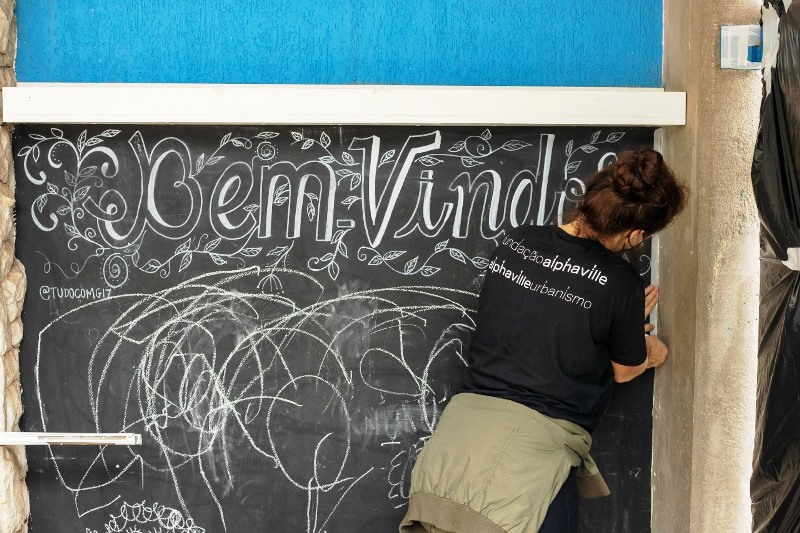 Bem-Vindo
@TUDOCOMGIZ
fundaçãoalphaville
alphavilleurbanismo